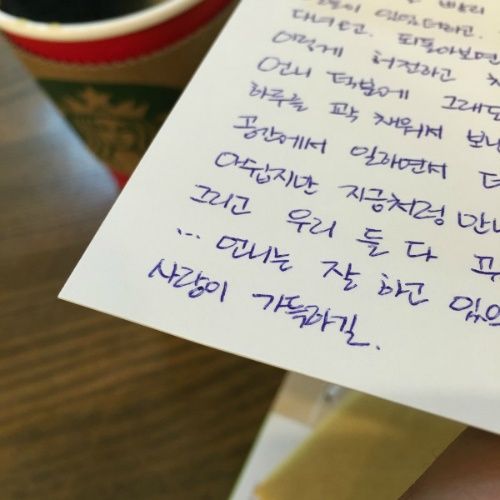 빨리
일일더라고.
다녀도. 되돌아보면
이렇게 허전하고
언니 덕분에 그래도
하루를 꼭꼭 채워서 보내
공간에서 일하면서
아쉽지만 지금처럼 만나
그리고 우리 둘 다
... 언니는 잘 하고 있으
사랑이 가득하길.